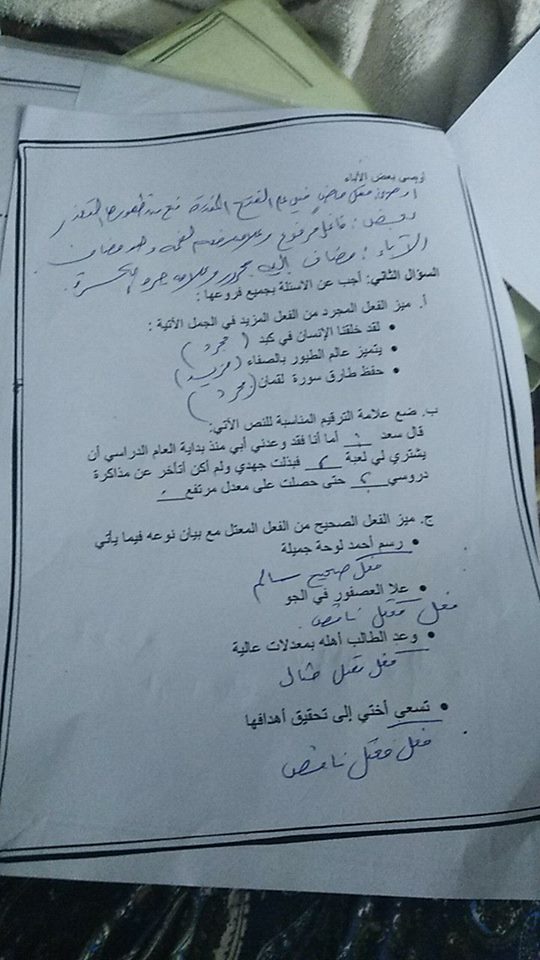 اوصى بعض الأنباء
اوصى: فعل ماض مبني على الفتح المقدرة منع من ظهورها التعذر
بعض: فاعل مرفوع وعلامة رفعه الضمة وهو مضاف
الآباء: مضاف إليه مجرور وعلامة جره الكسرة
السؤال الثاني: أجب عن الاسئلة بجميع فروعها :
أ. ميز الفعل المجرد من الفعل المزيد في الجمل الآتية :
• لقد خلقنا الإنسان في كبد ( مجرد )
• يتميز عالم الطيور بالصفاء ( مزيد )
• حفظ طارق سورة لقمان ( مجرد )
ب. ضع علامة الترقيم المناسبة للنص الآتي:
قال سعد : أما أنا فقد وعدني أبي منذ بداية العام الدراسي أن
يشتري لي لعبة ، فبذلت جهدي ولم أكن أتأخر عن مذاكرة
دروسي ، حتى حصلت على معدل مرتفع .
ج. ميز الفعل الصحيح من الفعل المعتل مع بيان نوعه فيما يأتي
• رسم أحمد لوحة جميلة
فعل صحيح سالم
• علا العصفور في الجو
فعل معتل ناقص
• وعد الطالب أهله بمعدلات عالية
فعل معتل مثال
• تسعى أختي إلى تحقيق أهدافها
فعل معتل ناقص